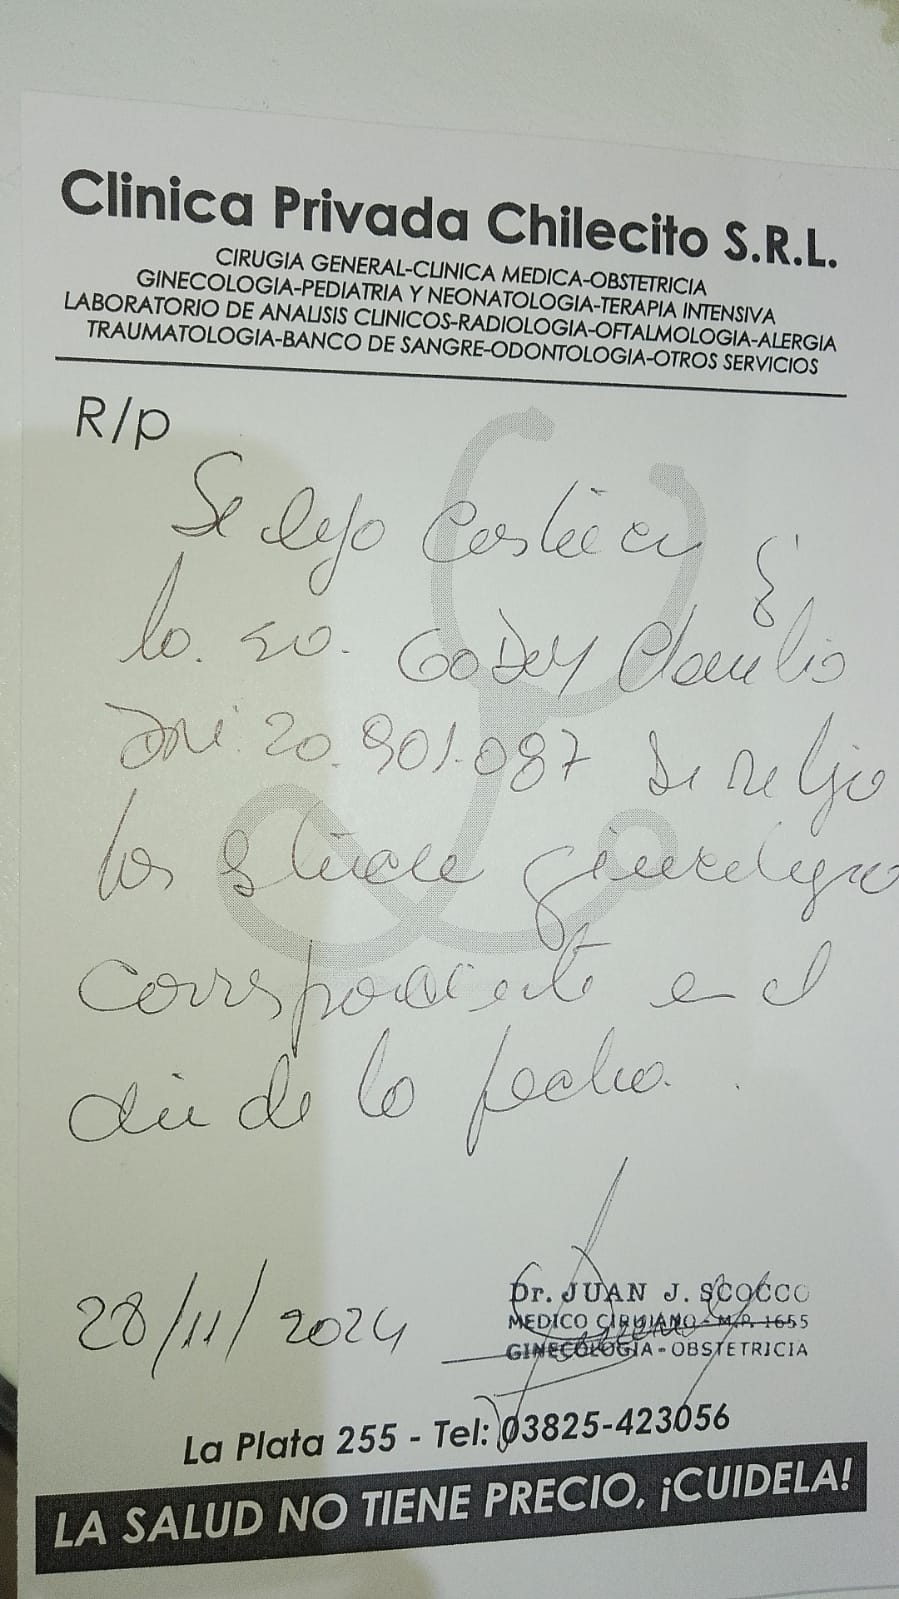 Clinica Privada Chilecito S.R.L.
CIRUGIA GENERAL-CLINICA MEDICA-OBSTETRICIA
GINECOLOGIA-PEDIATRIA Y NEONATOLOGIA-TERAPIA INTENSIVA
LABORATORIO DE ANALISIS CLINICOS-RADIOLOGIA-OFTALMOLOGIA-ALERGIA
TRAUMATOLOGIA-BANCO DE SANGRE-ODONTOLOGIA-OTROS SERVICIOS
R/p
Se dejo
la Godoy
DNI 20.901.087
los
correspondiente en el
dia de la fecha.
28/11/2024
Dr. JUAN J. SCOCCO
MEDICO CIRUJANO - M.P. 1655
GINECOLOGIA - OBSTETRICIA
La Plata 255 - Tel: 03825-423056
LA SALUD NO TIENE PRECIO, ¡CUIDELA!